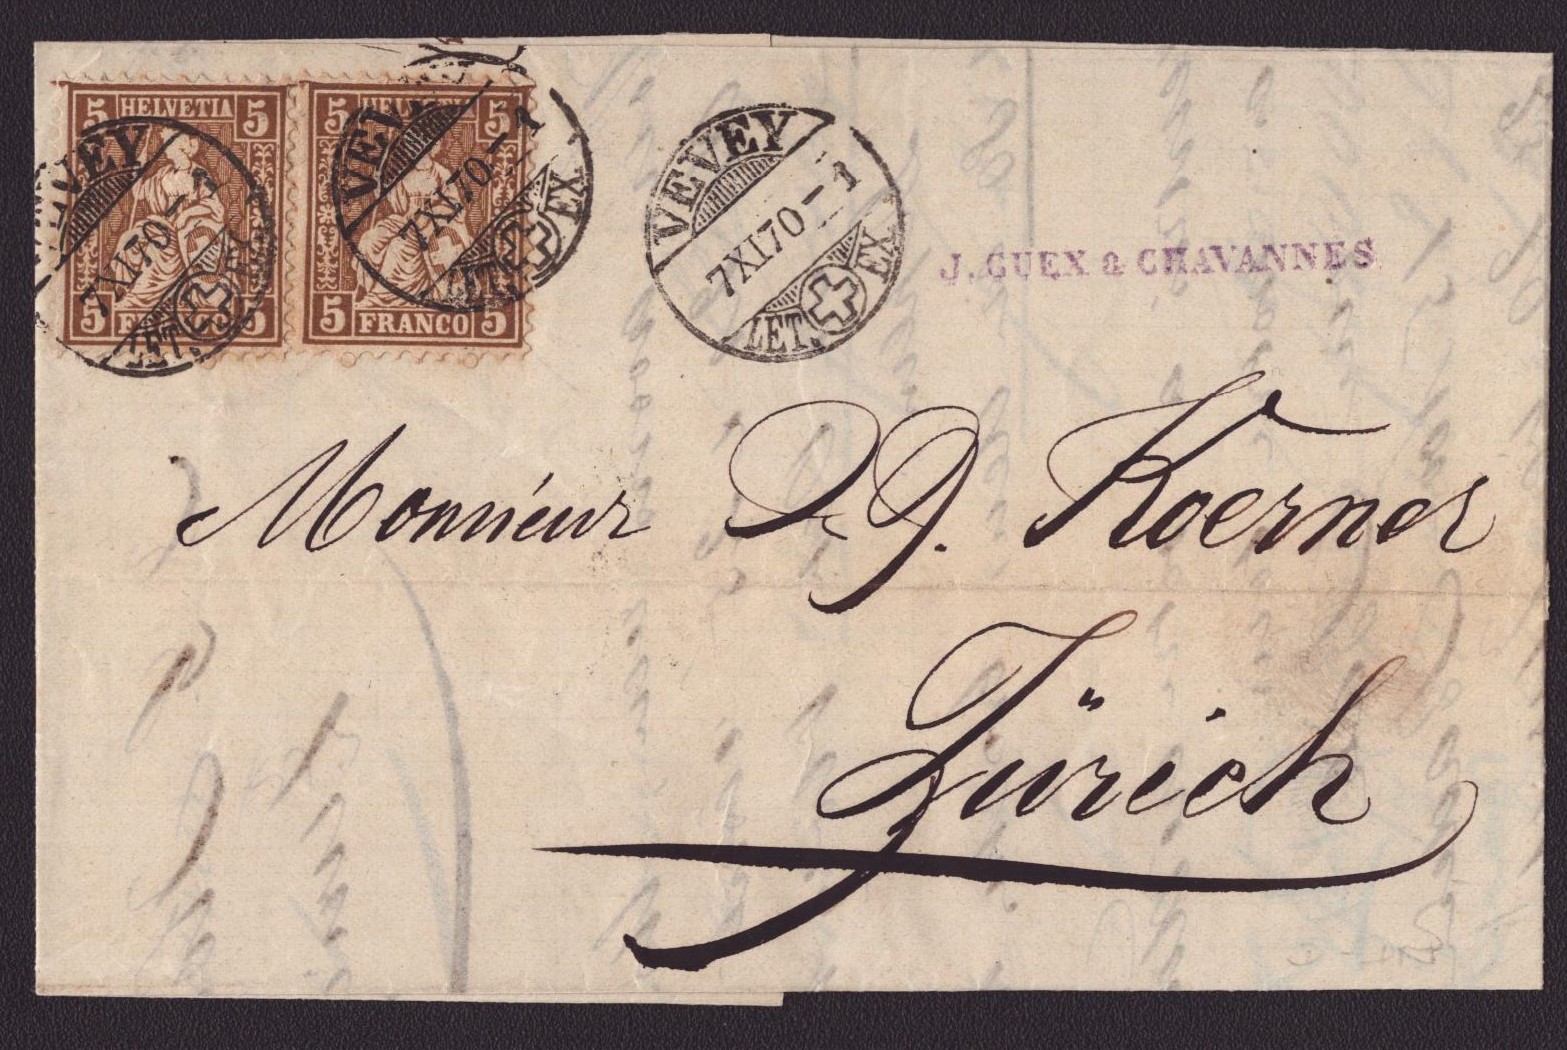 5 HELVETIA 5
5 5
5 5
5 FRANCO 5
VEVEY
7 XI 70 - 1
LET. EX
VEVEY
7 XI 70 - 1
LET. EX
VEVEY
7 XI 70 - 1
LET. EX
J. GUEX & CHAVANNES
Monsieur D. Koerner
Zürich